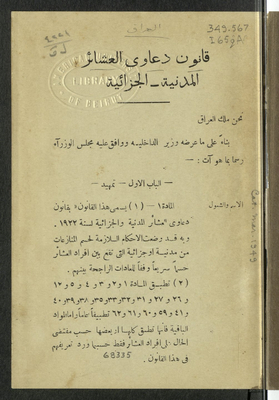 العراق
349.567
I65qA
قانون دعاوى العشائر
المدنية - الجزائية
نحن ملك العراق
بناءً على ما عرضه وزير الداخلية ووافق عليه مجلس الوزراء
رسمنا بما هو آت : —
— الباب الاول - تمهيد —
الاسم والشمول
المادة ١ — (١) يسمى هذا القانون « بقانون
دعاوى العشائر المدنية والجزائية لسنة ١٩٢٢.
وبه قد وضعت الاحكام اللازمة لحسم المنازعات
من مدنية او جزائية التي تقع بين افراد العشائر
حسماً سريعاً وفقاً للعادات الراجحة بينهم .
(٢) تطبق المادة ١ و ٢ و ٣ و ٤ و ٥ و ١٢
و ٢٦ و ٢٧ و ٣١ و ٣٢ و ٣٣ و ٣٥ و ٣٨ و ٣٩ و ٤٠
و ٤١ و ٥٩ و ٦٠ و ٦١ و ٦٢ تطبيقاً عاماً واما المواد
الباقية فأنها تطبق كلها او بعضها حسب مقتضى
الحال ، الى افراد العشائر فقط حسبما ورد تعريفهم
في هذا القانون .
68335